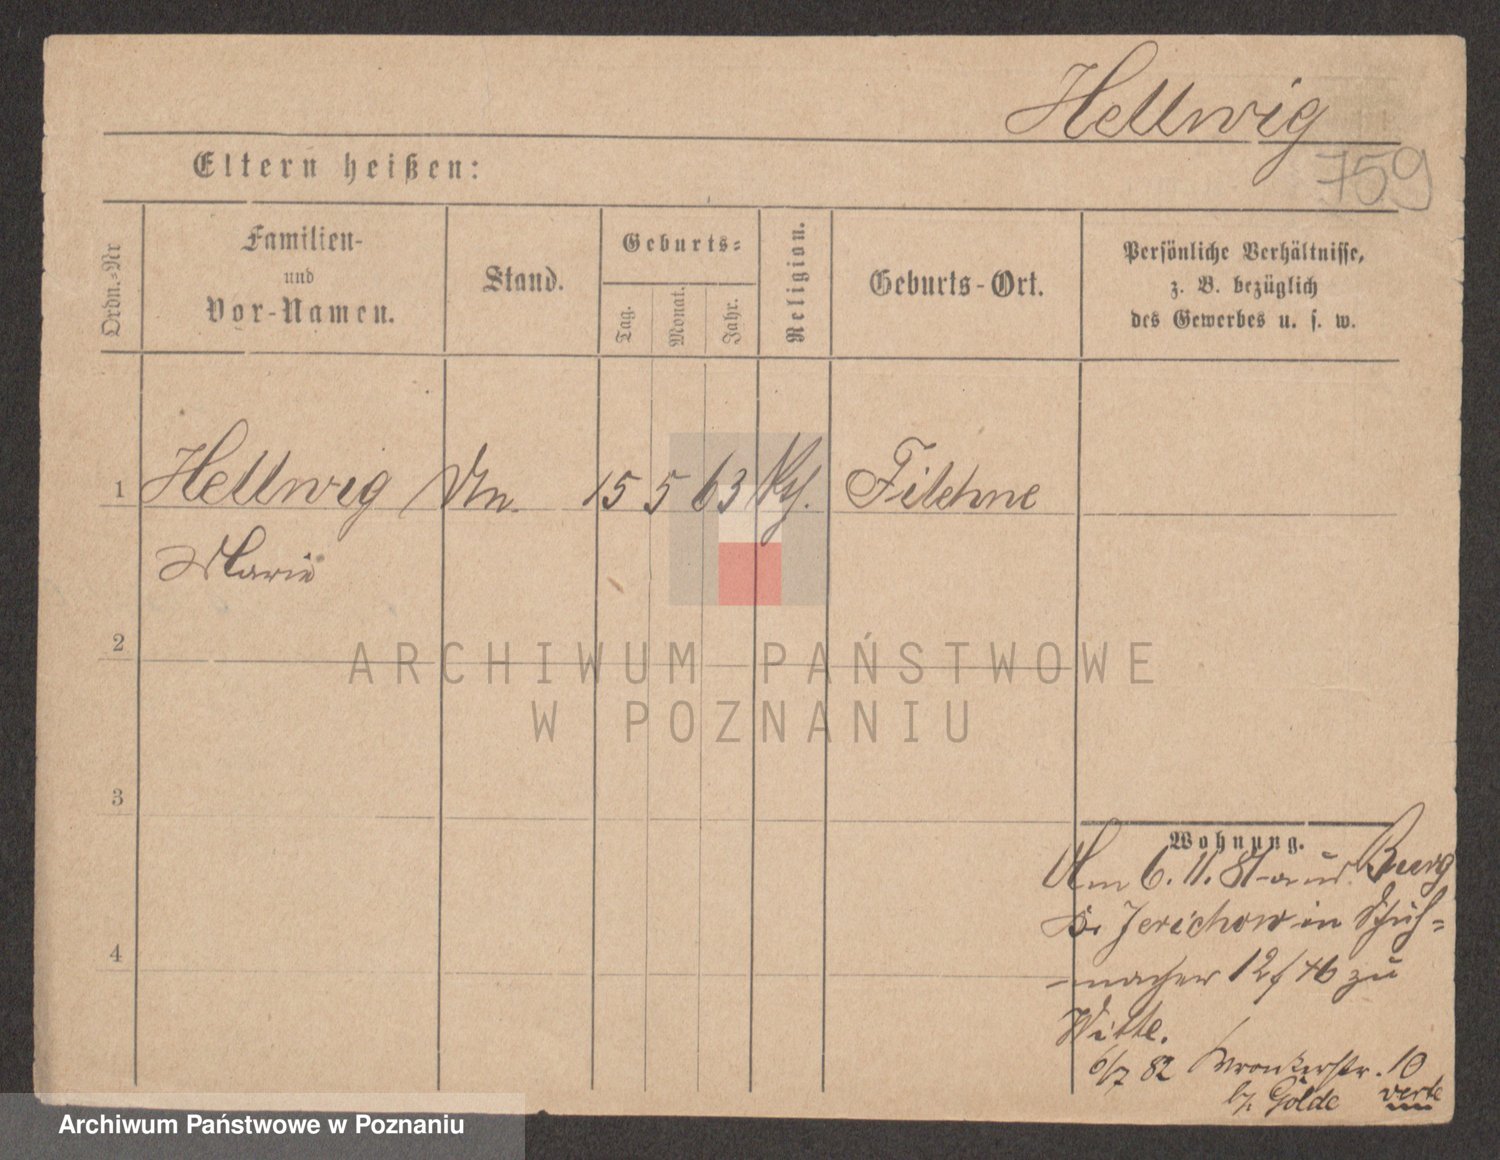 Hellwig
759
Eltern heißen:
Ordn.-Nr
Familien-
und
Vor-Namen.
Stand.
Geburts-
Tag.
Monat.
Jahr.
Religion.
Geburts-Ort.
Persönliche Verhältnisse,
z. B. bezüglich
des Gewerbes u. s. w.
1 Hellwig Un. 15 5 63 Filehne
Marie
2
3
4
Wohnung.
Am 6. 11. 81 aus Burg
Jerichow in Schuh-
macher 12 zu
Witte.
6/7 82 Wronkerstr. 10
b. Golde verte
ARCHIWUM PAŃSTWOWE
W POZNANIU
Archiwum Państwowe w Poznaniu